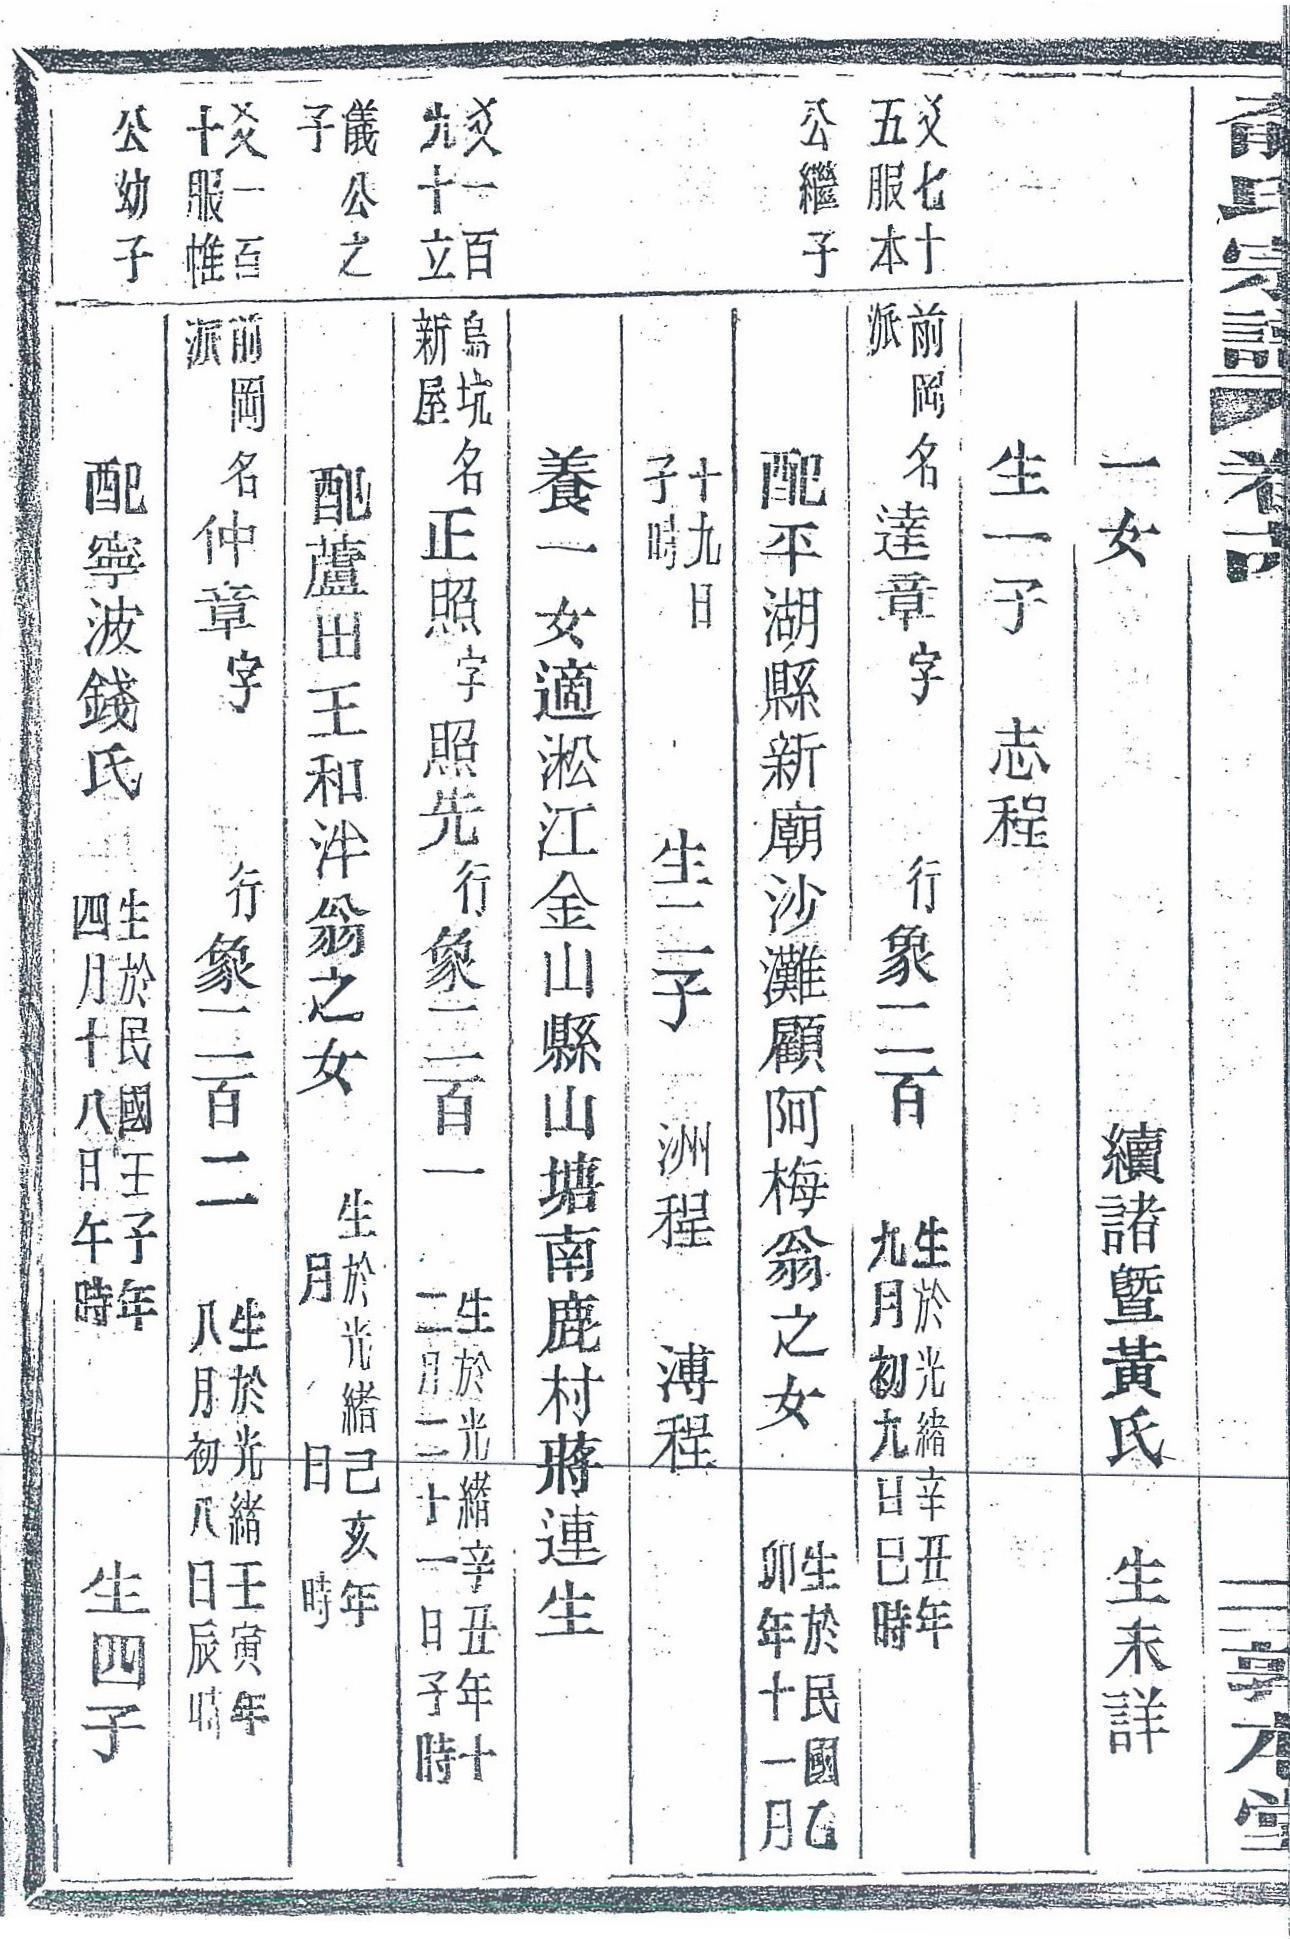 氏宗譜 卷 敦本堂
一女 續諸暨黃氏 生未詳
生一子 志程
爻七十五服本 前岡派 名達章字 行象二百 生於光緒辛丑年九月初九日巳時
公繼子 配平湖縣新廟沙灘顧阿梅翁之女 生於民國乙卯年十一月
十九日子時 生二子 洲程 溥程
養一女適淞江金山縣山塘南鹿村蔣連生
爻一百九十立 烏坑新屋 名正照字照先行象二百一 生於光緒辛丑年十二月二十一日子時
儀公之子 配蘆田王和泮翁之女 生於光緒己亥年 月 日 時
爻一百十服惟 前岡派 名仲章字 行象二百二 生於光緒壬寅年八月初八日辰時
公幼子 配寧波錢氏 生於民國壬子年四月十八日午時 生四子